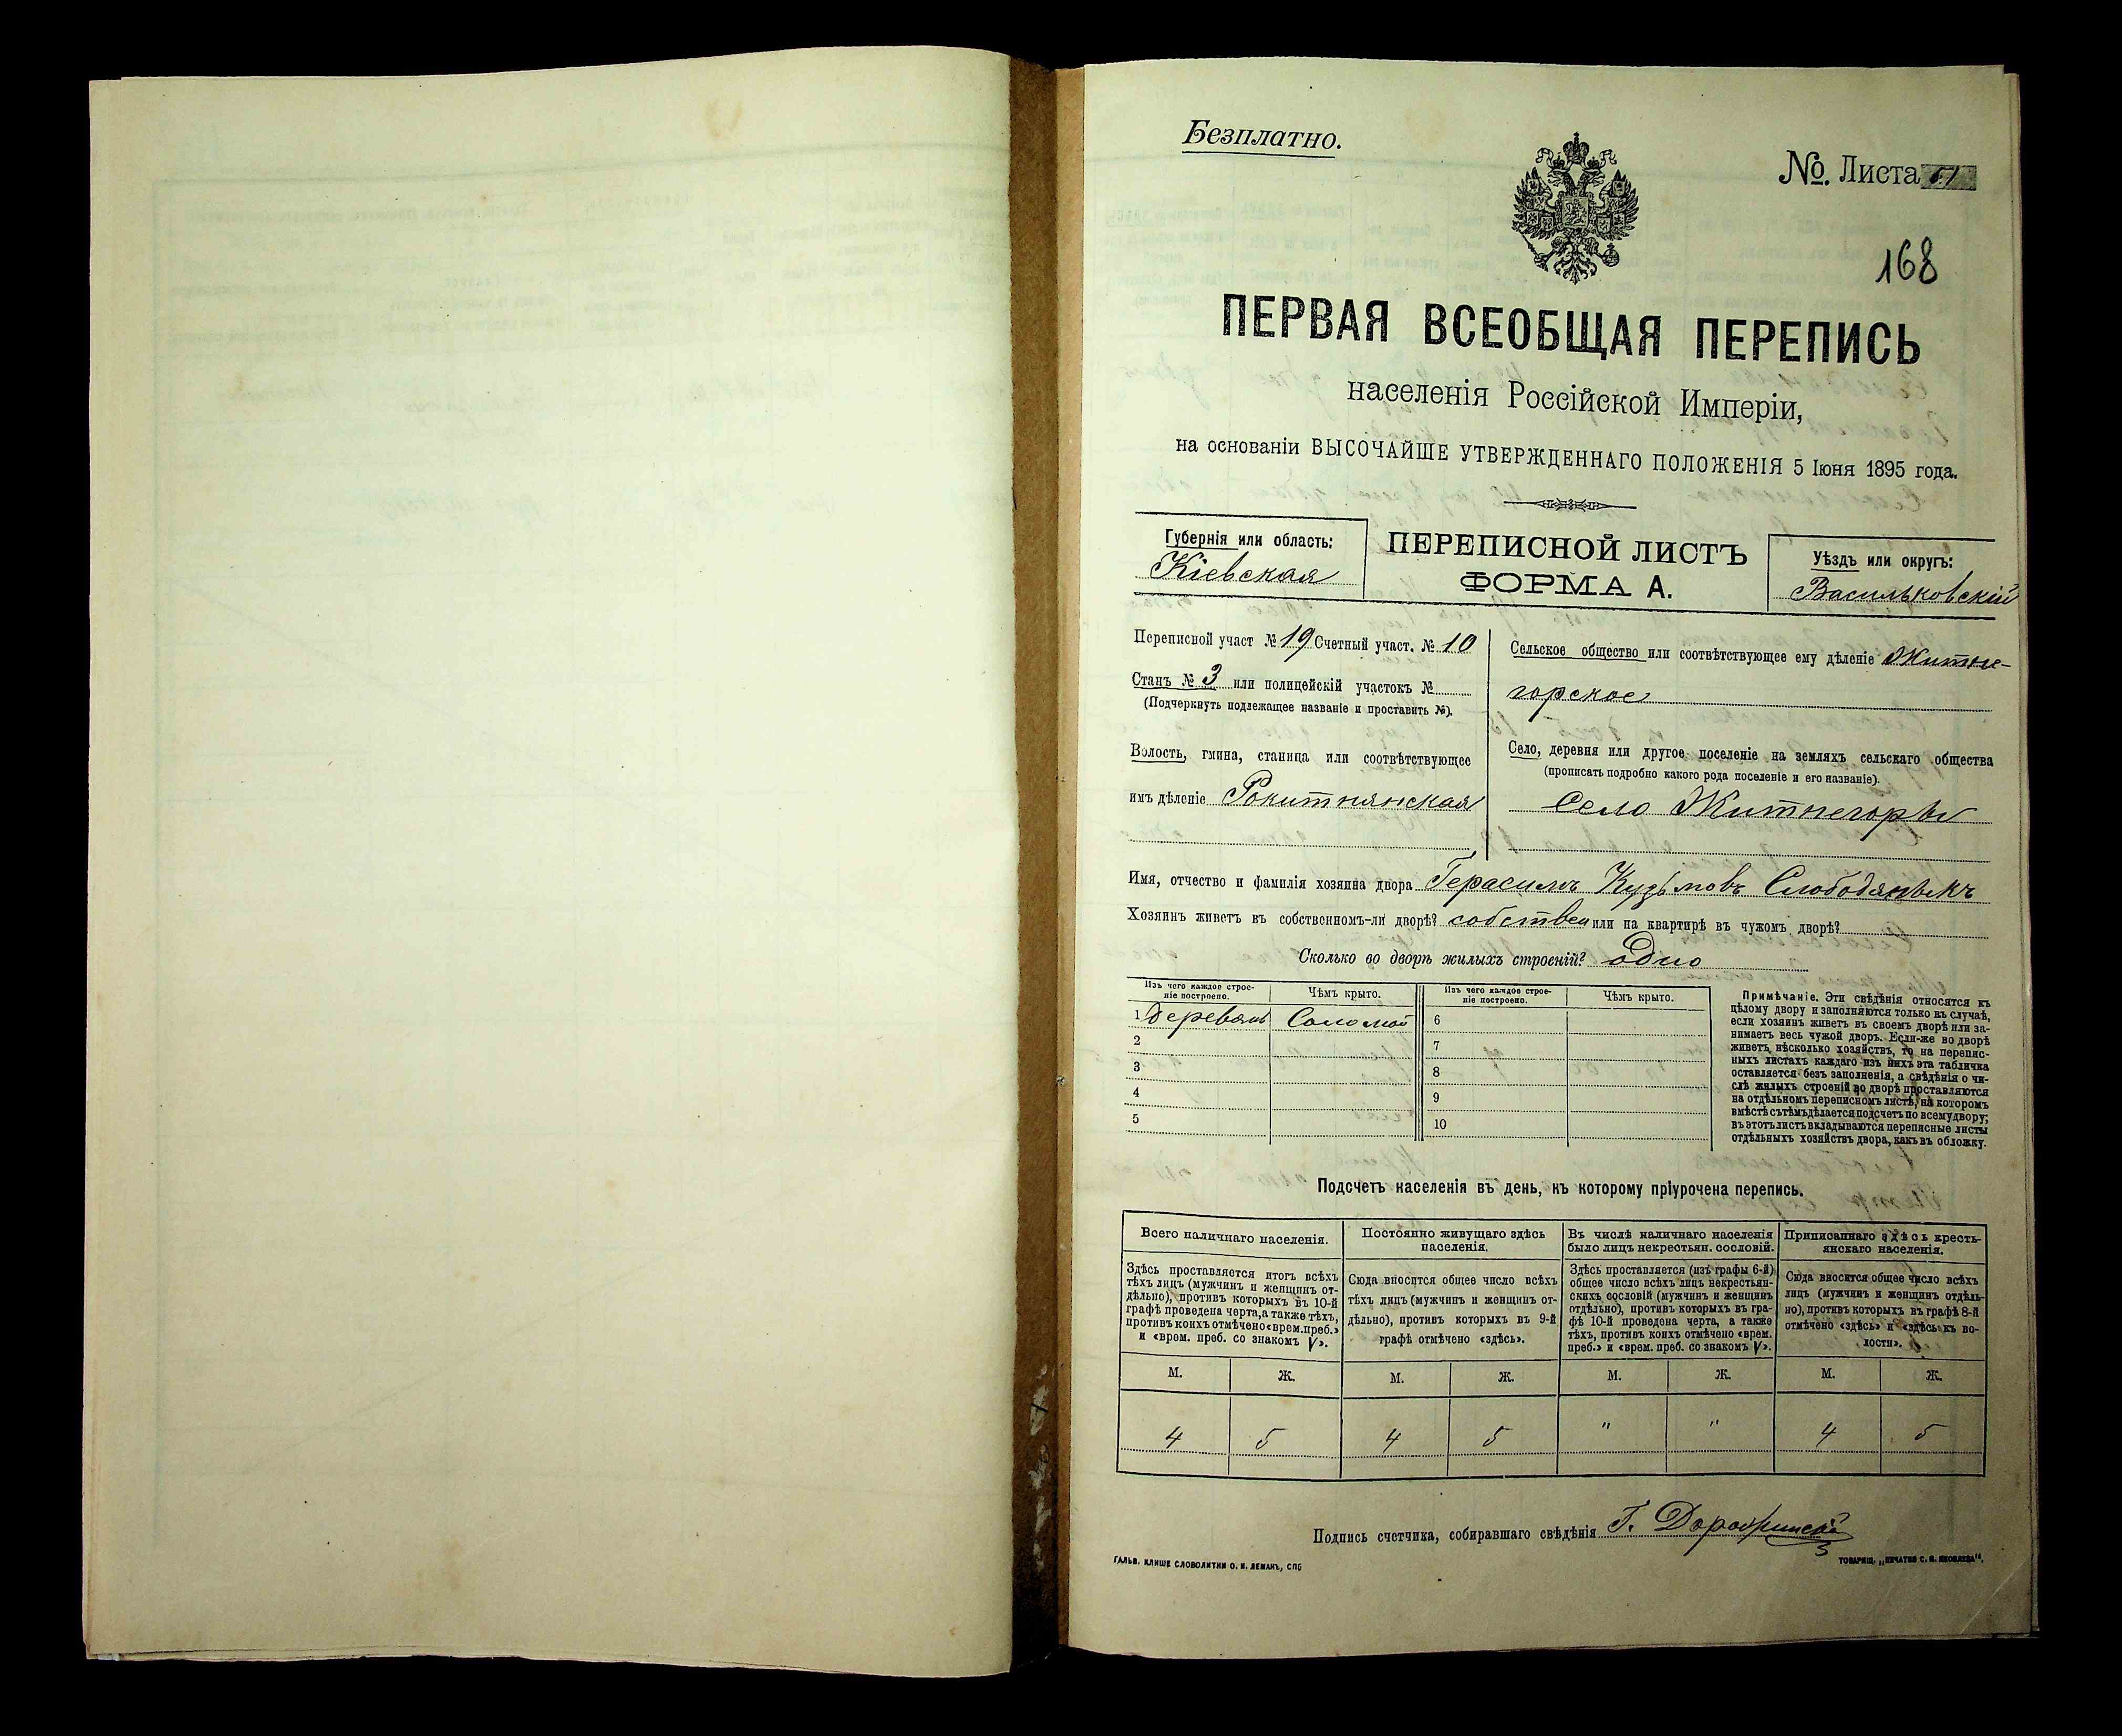 Безплатно.
№. Листа 51
168
ПЕРВАЯ ВСЕОБЩАЯ ПЕРЕПИСЬ
населенія Россійской Имперіи,
на основаніи ВЫСОЧАЙШЕ УТВЕРЖДЕННАГО ПОЛОЖЕНІЯ 5 Іюня 1895 года.
Губернія или область:
Кіевская
ПЕРЕПИСНОЙ ЛИСТЪ
ФОРМА А.
Уѣздъ или округъ:
Васильковскій
Переписной участ № 19 Счетный участ. № 10
Станъ № 3 или полицейскій участокъ №
(Подчеркнуть подлежащее названіе и проставить №).
Волость, гмина, станица или соотвѣтствующее
имъ дѣленіе Рокитнянская
Сельское общество или соотвѣтствующее ему дѣленіе Житне-
горское
Село, деревня или другое поселеніе на земляхъ сельскаго общества
(прописать подробно какого рода поселеніе и его названіе).
Село Житнегоры
Имя, отчество и фамилія хозяина двора Герасимъ Кузьмовъ Слободянькъ
Хозяинъ живетъ въ собственномъ-ли дворѣ? собствен или на квартирѣ въ чужомъ дворѣ?
Сколько во дворѣ жилыхъ строеній? одно
Изъ чего каждое строе-
ніе построено.
Чѣмъ крыто.
Изъ чего каждое строе-
ніе построено.
Чѣмъ крыто.
1 деревян Соломой 6
2 7
3 8
4 9
5 10
Примѣчаніе. Эти свѣдѣнія относятся къ
цѣлому двору и заполняются только въ случаѣ,
если хозяинъ живетъ въ своемъ дворѣ или за-
нимаетъ весь чужой дворъ. Если-же во дворѣ
живетъ нѣсколько хозяйствъ, то на перепис-
ныхъ листахъ каждаго изъ нихъ эта табличка
оставляется безъ заполненія, а свѣдѣнія о чи-
слѣ жилыхъ строеній во дворѣ проставляются
на отдѣльномъ переписномъ листѣ, на которомъ
вмѣстѣ съ тѣмъ дѣлается подсчетъ по всему двору;
въ этотъ листъ вкладываются переписные листы
отдѣльныхъ хозяйствъ двора, какъ въ обложку.
Подсчетъ населенія въ день, къ которому пріурочена перепись.
Всего наличнаго населенія.
Здѣсь проставляется итогъ всѣхъ
тѣхъ лицъ (мужчинъ и женщинъ от-
дѣльно), противъ которыхъ въ 10-й
графѣ проведена черта, а также тѣхъ,
противъ коихъ отмѣчено «врем. преб.»
и «врем. преб. со знакомъ V».
Постоянно живущаго здѣсь
населенія.
Сюда вносится общее число всѣхъ
тѣхъ лицъ (мужчинъ и женщинъ от-
дѣльно), противъ которыхъ въ 9-й
графѣ отмѣчено «здѣсь».
Въ числѣ наличнаго населенія
было лицъ некрестьян. сословій.
Здѣсь проставляется (изъ графы 6-й)
общее число всѣхъ лицъ некрестьян-
скихъ сословій (мужчинъ и женщинъ
отдѣльно), противъ которыхъ въ гра-
фѣ 10-й проведена черта, а также
тѣхъ, противъ коихъ отмѣчено «врем.
преб.» и «врем. преб. со знакомъ V».
Приписаннаго здѣсь кресть-
янскаго населенія.
Сюда вносится общее число всѣхъ
лицъ (мужчинъ и женщинъ отдѣль-
но), противъ которыхъ въ графѣ 8-й
отмѣчено «здѣсь» и «здѣсь къ во-
лости».
М. Ж. М. Ж. М. Ж. М. Ж.
4 5 4 5 " " 4 5
Подпись счетчика, собиравшаго свѣдѣнія Г.
ГАЛЬВ. КЛИШЕ СЛОВОЛИТНИ О. И. ЛЕМАНЪ, СПБ
ТОВАРИЩ. „ПЕЧАТНЯ С. П. ЯКОВЛЕВА".